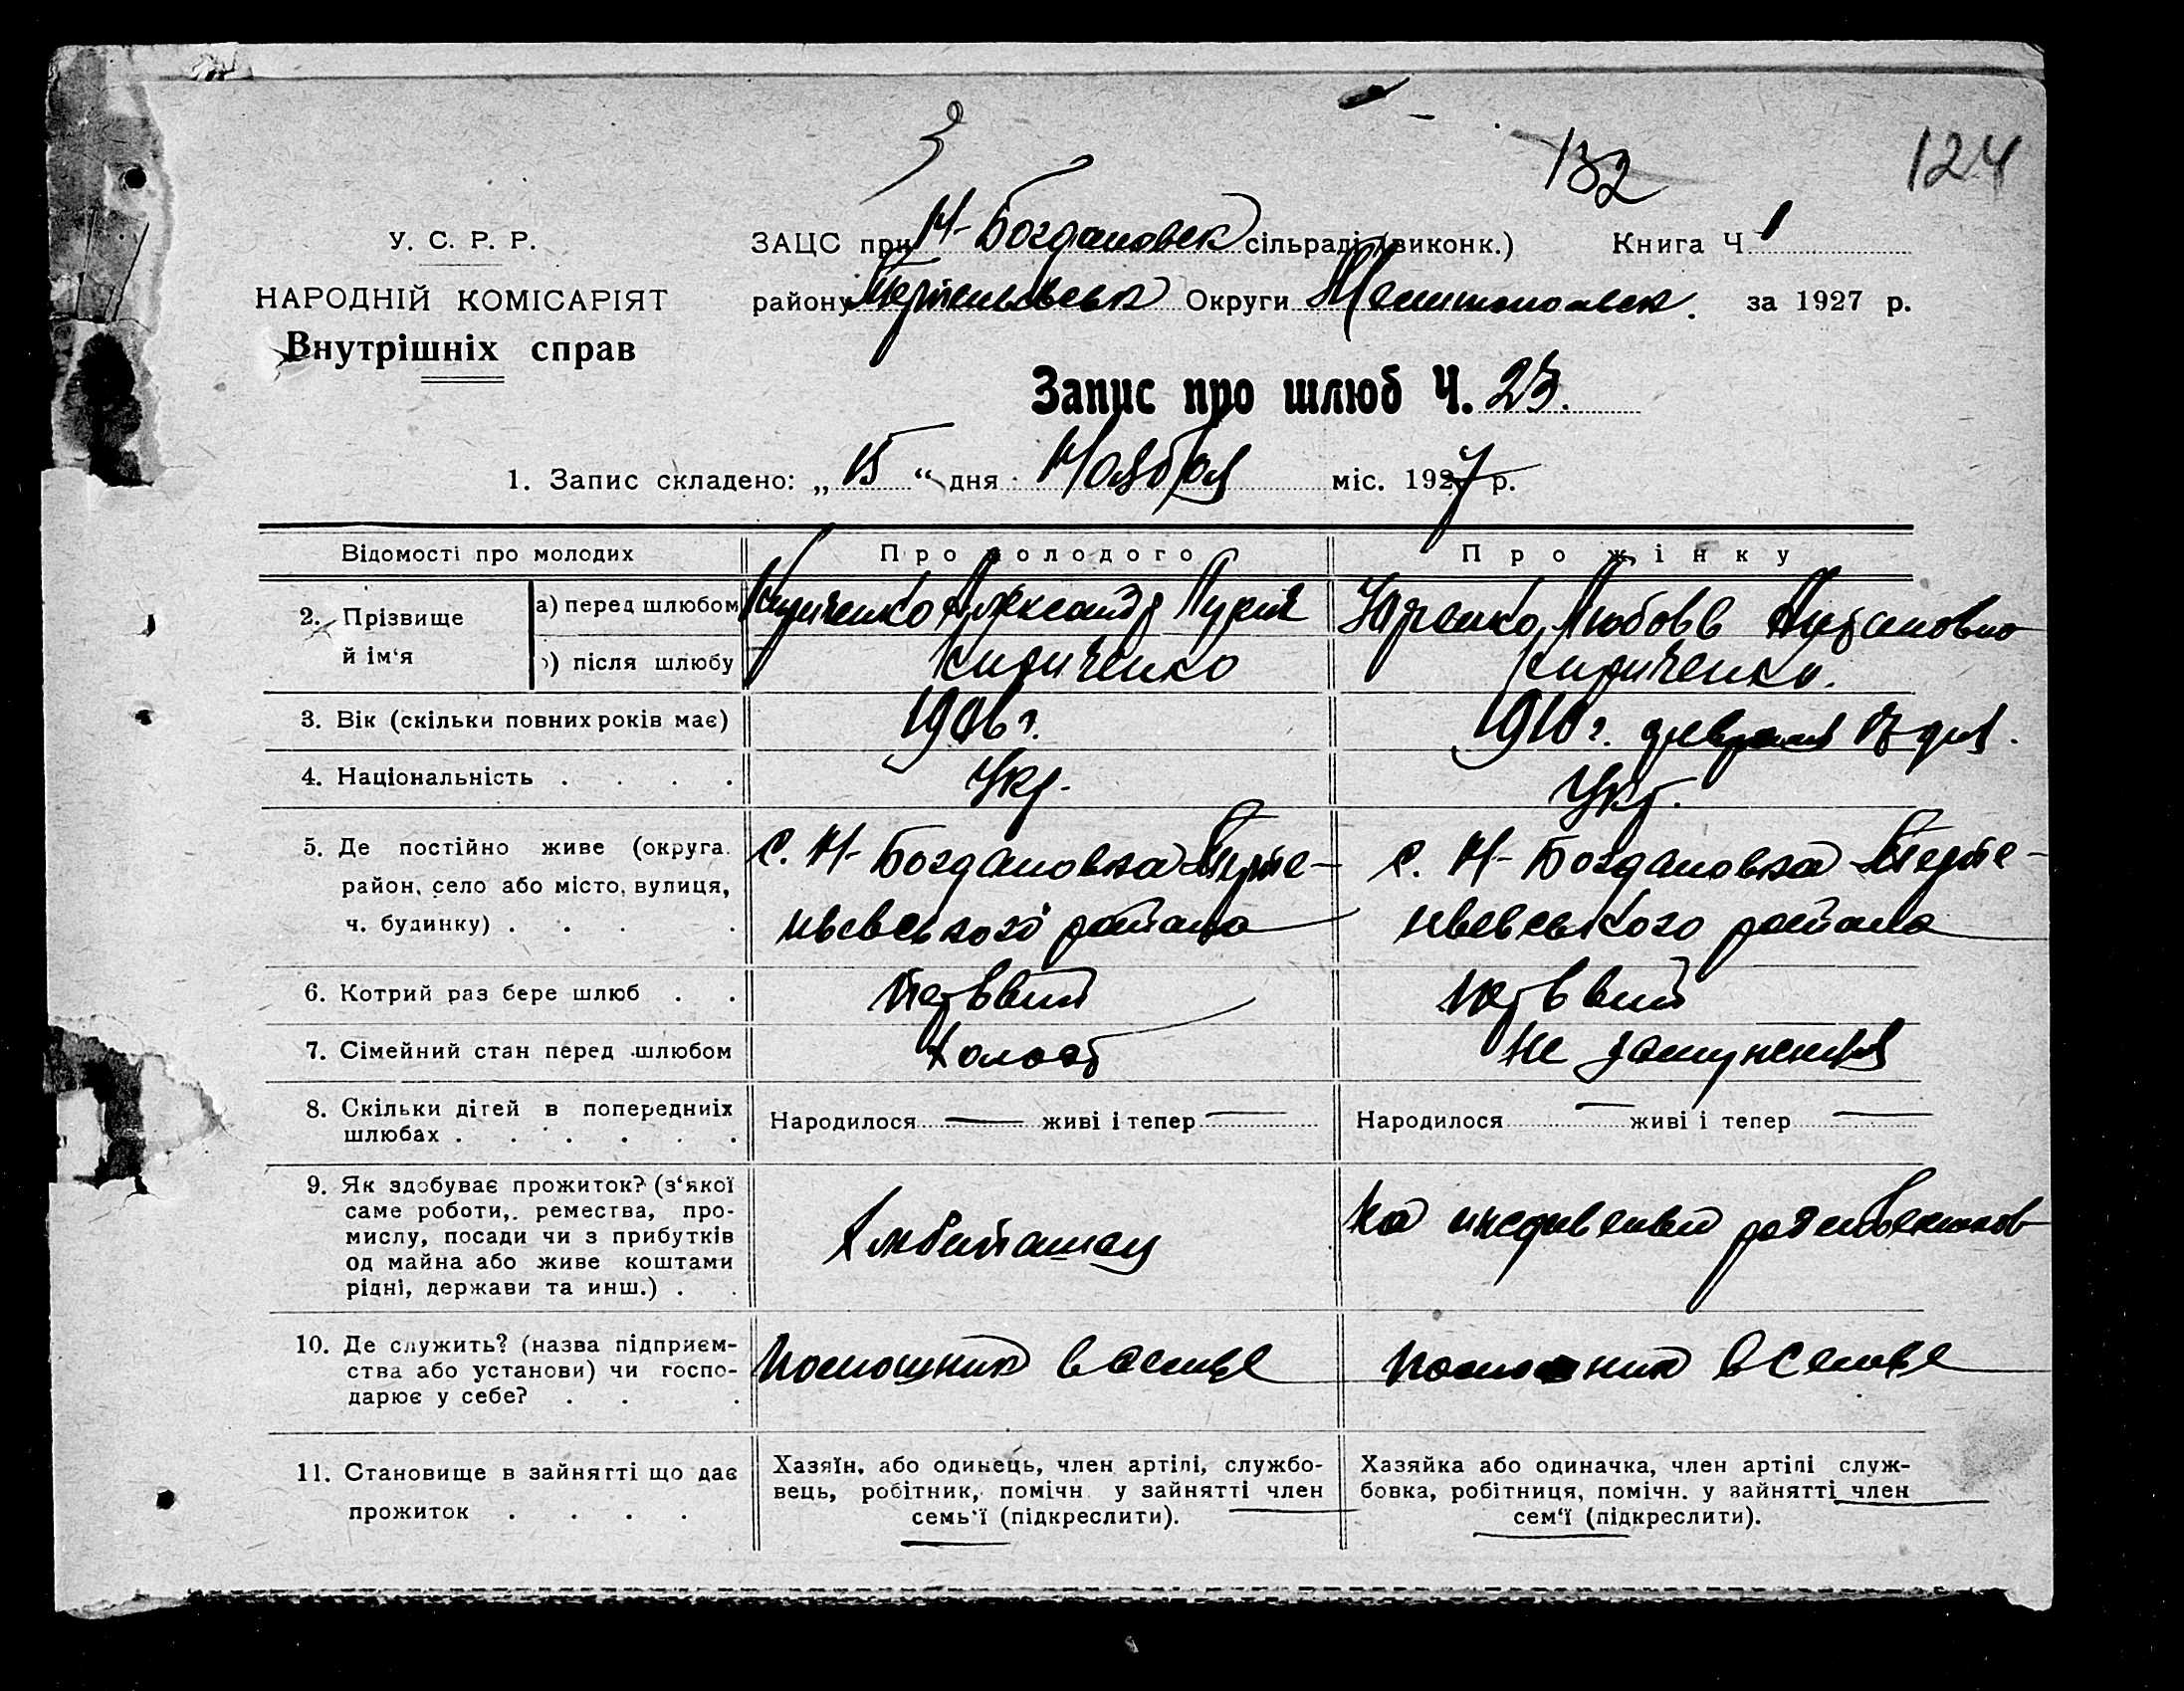 132
124
У. С. Р. Р.
ЗАЦС при Н-Богдановск сільраді (виконк.) Книга Ч 1
НАРОДНІЙ КОМІСАРІЯТ
району Терпеньевськ Округи Мелитополск. за 1927 р.
Внутрішніх справ
Запис про шлюб Ч. 25.
1. Запис складено: „ 15 “ дня Ноября міс. 1927 р.
Відомості про молодих
Про молодого
Про жінку
2. Прізвище й ім‘я
а) перед шлюбом
Кириченко Александр Лукич
Юрченко Любовь
б) після шлюбу
Кириченко
Кириченко.
3. Вік (скільки повних років має)
1906 г.
1910 г. февраля дня.
4. Національність . . . .
Укр.
Укр.
5. Де постійно живе (округа,
район, село або місто, вулиця,
ч. будинку) . . . .
с. Н-Богдановка Терпе-
ньевського района
с. Н-Богдановка Терпе-
ньевського района
6. Котрий раз бере шлюб . .
Первый
Первый
7. Сімейний стан перед шлюбом
Холост
Не замужемня
8. Скільки дітей в попередниіх
шлюбах . . . . . .
Народилося — живі і тепер —
Народилося — живі і тепер —
9. Як здобуває прожиток? (з‘якої
саме роботи, ремества, про-
мислу, посади чи з прибутків
од майна або живе коштами
рідні, держави та инш.) . .
Хлебопашец
На иждивении
10. Де служить? (назва підприєм-
ства або установи) чи госпо-
дарює у себе? . . .
Помощник в семье
Помошник в семье
11. Становище в зайнятті що дає
прожиток . . . .
Хазяїн, або одинець, член артілі, службо-
вець, робітник, помічн. у зайнятті член
семь‘ї (підкреслити).
Хазяйка або одиначка, член артілі служ-
бовка, робітниця, помічн. у зайнятті член
сем‘ї (підкреслити).